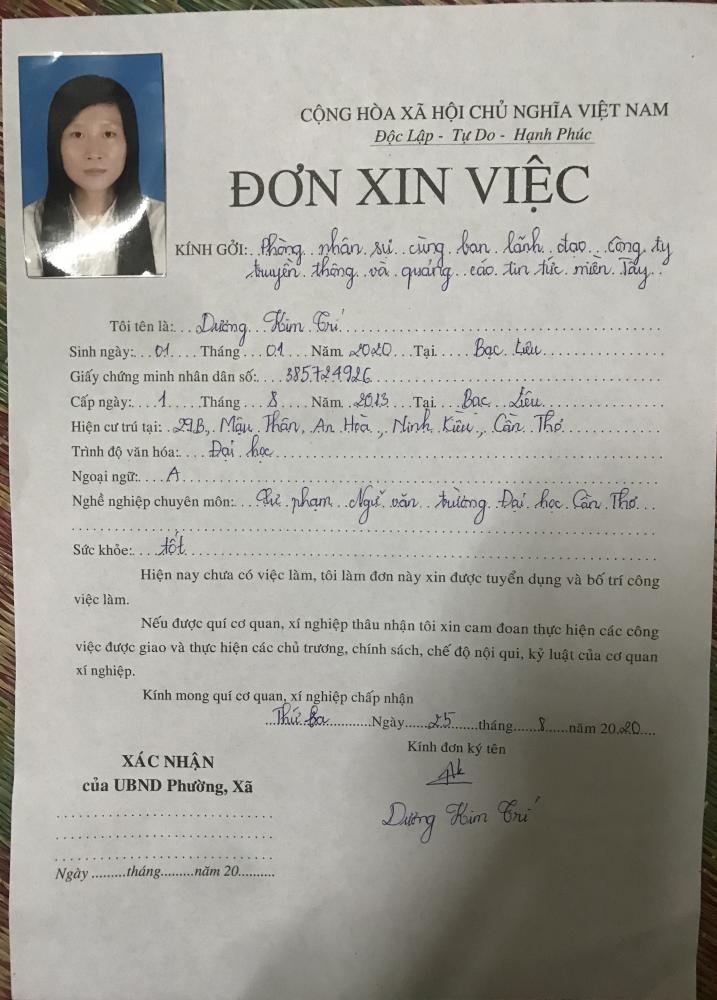 CỘNG HÒA XÃ HỘI CHỦ NGHĨA VIỆT NAM
Độc Lập - Tự Do - Hạnh Phúc
ĐƠN XIN VIỆC
KÍNH GỞI: Phòng nhân sự cùng ban lãnh đạo công ty
truyền thông và quảng cáo tin tức miền Tây
Tôi tên là: Dương Kim Trí
Sinh ngày: 01 Tháng 01 Năm 2020 Tại Bạc Liêu
Giấy chứng minh nhân dân số: 385724926
Cấp ngày: 1 Tháng 8 Năm 2013 Tại Bạc Liêu
Hiện cư trú tại: 29B, Mậu Thân, An Hòa, Ninh Kiều, Cần Thơ
Trình độ văn hóa: Đại học
Ngoại ngữ: A
Nghề nghiệp chuyên môn: Sư phạm Ngữ văn trường Đại học Cần Thơ
Sức khỏe: tốt
Hiện nay chưa có việc làm, tôi làm đơn này xin được tuyển dụng và bố trí công
việc làm.
Nếu được quí cơ quan, xí nghiệp thâu nhận tôi xin cam đoan thực hiện các công
việc được giao và thực hiện các chủ trương, chính sách, chế độ nội qui, kỷ luật của cơ quan
xí nghiệp.
Kính mong quí cơ quan, xí nghiệp chấp nhận
Thứ ba Ngày 25 tháng 8 năm 2020
Kính đơn ký tên
XÁC NHẬN
của UBND Phường, Xã
Dương Kim Trí
Ngày .........tháng.........năm 20..........